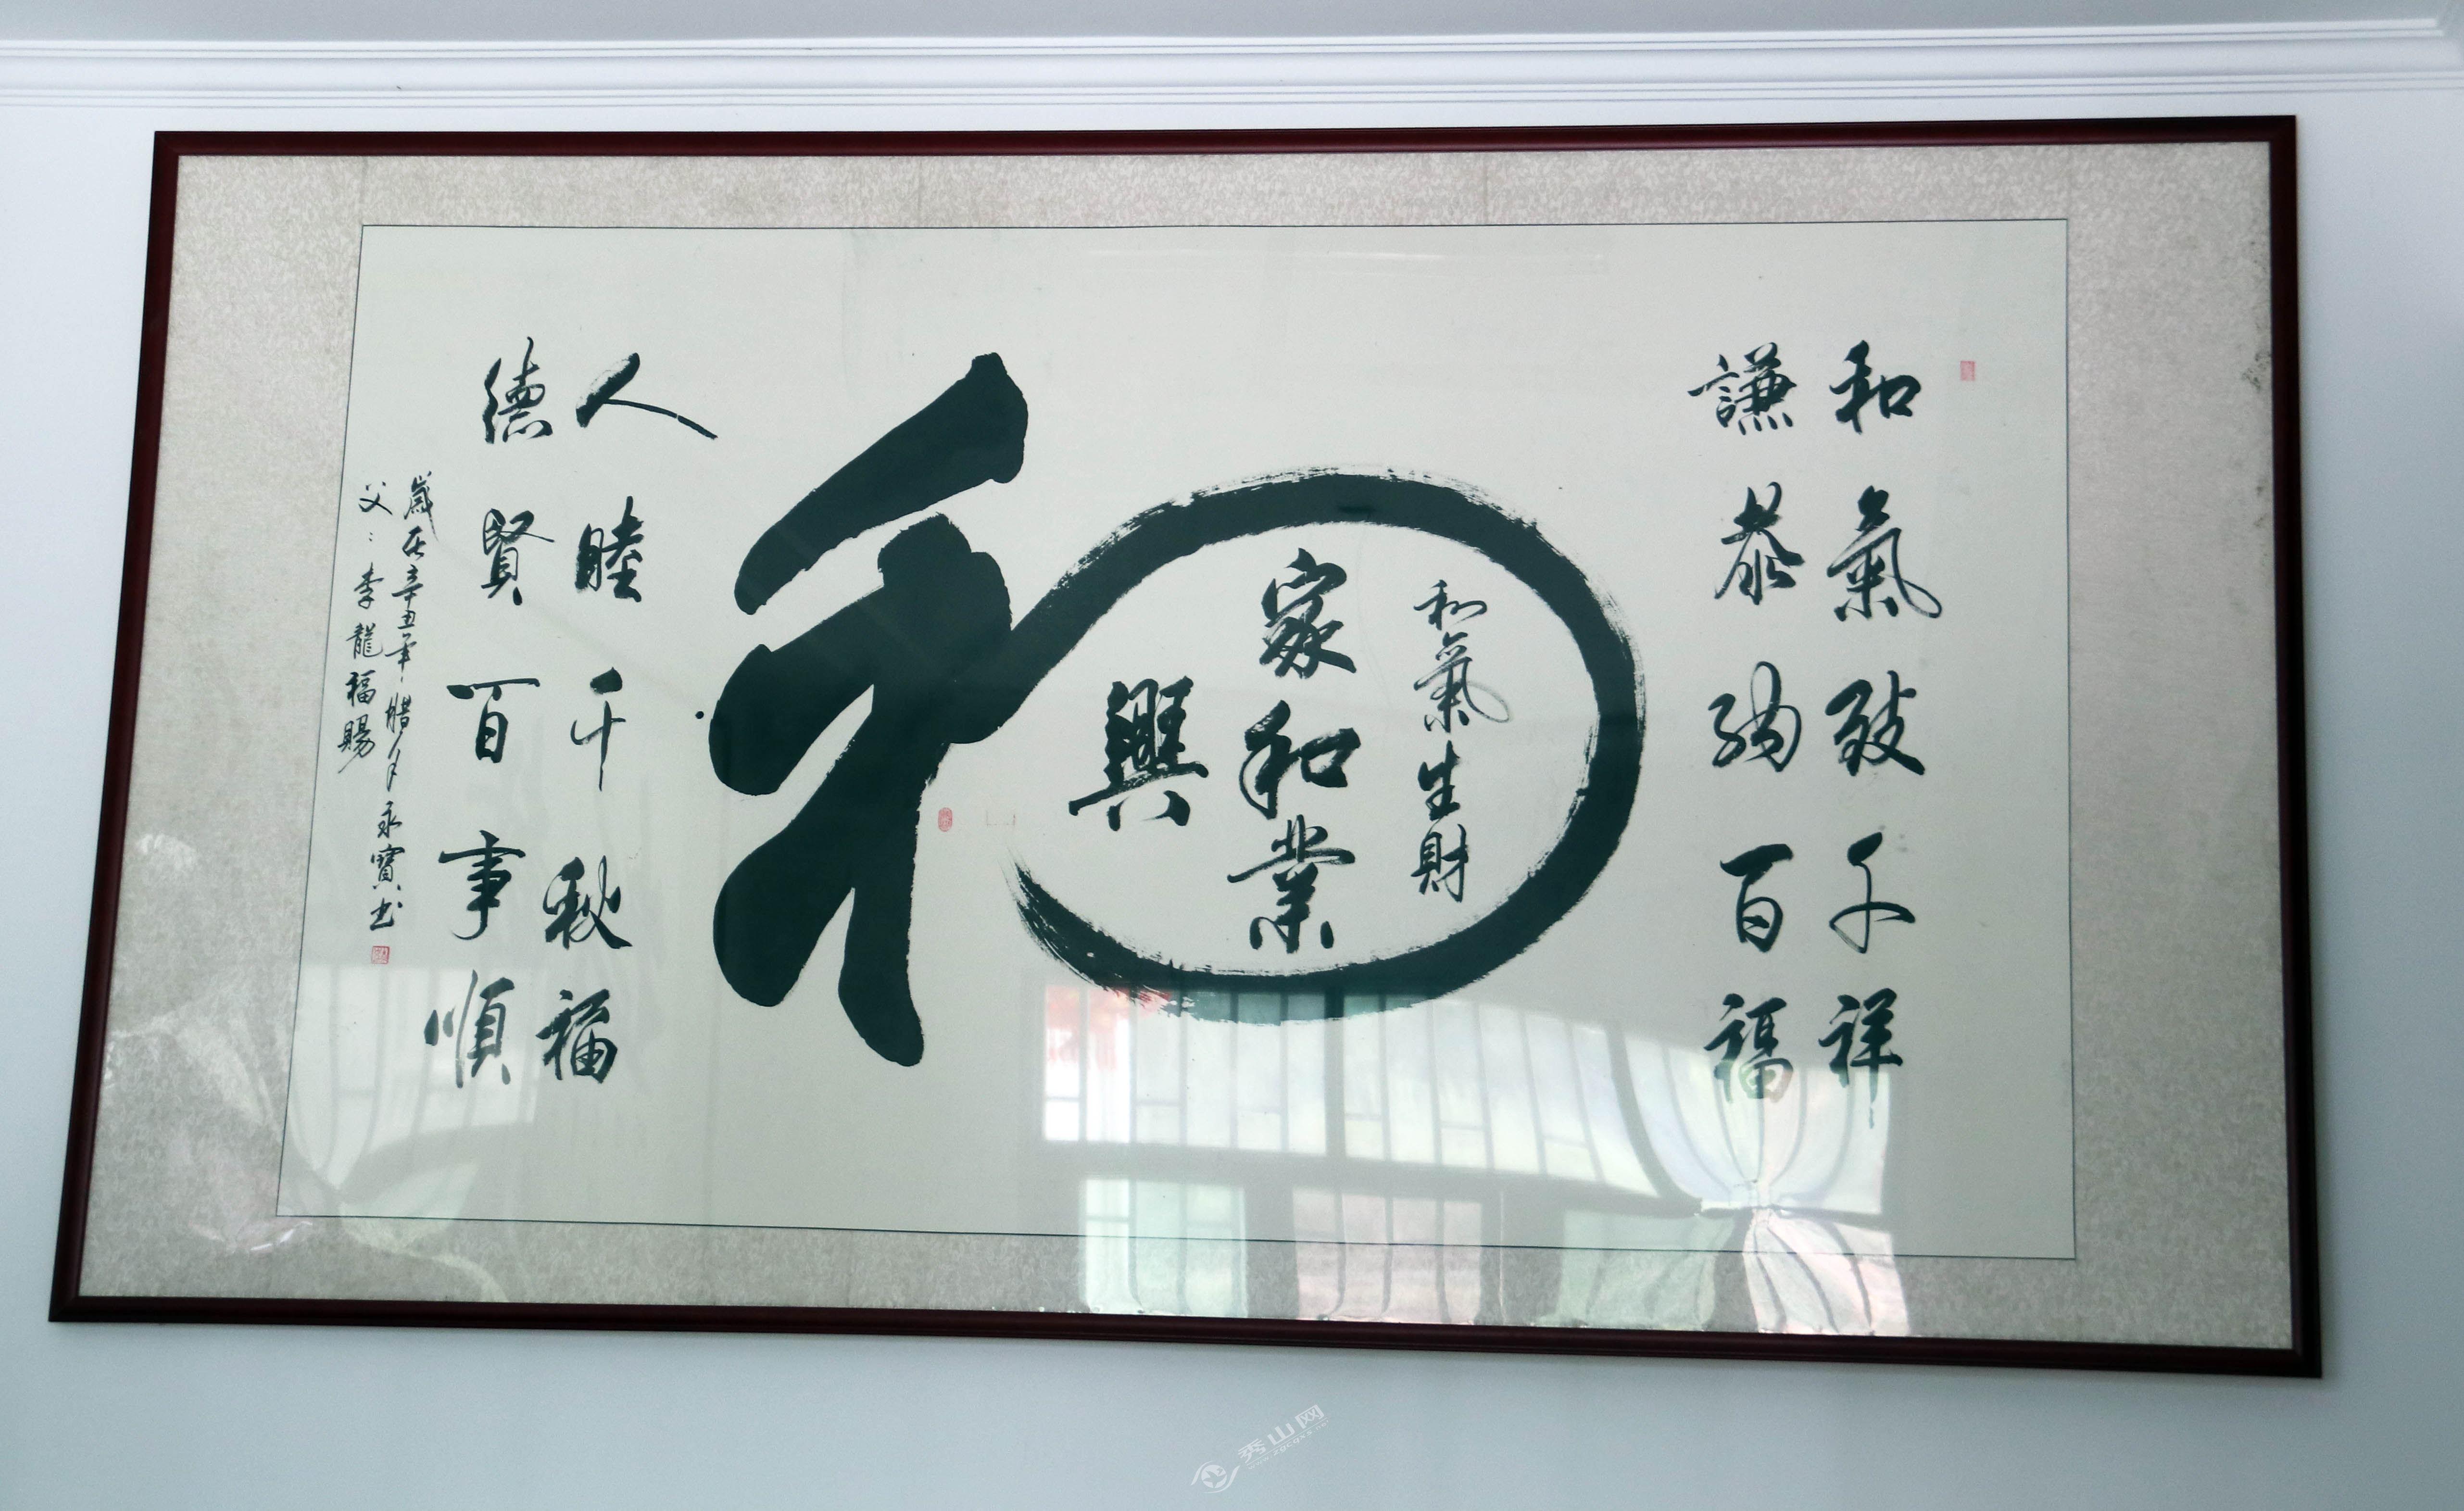 和氣致千祥
謙恭納百福
和
和氣生財
家和業
興
人睦千秋福
德賢百事順
歲在辛丑年腊月永寶书
父：李龍福賜
秀山网